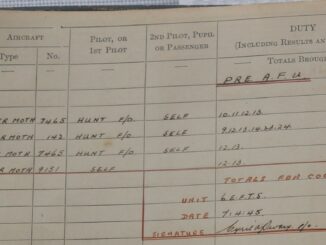 AIRCRAFT PILOT, OR 1ST PILOT 2ND PILOT, PUPIL OR PASSENGER DUTY (INCLUDING RESULTS AN
Type No. TOTALS BROUG
PRE A.F.U.
ER MOTH 7465 HUNT F/O. SELF 10.11.12.13.
R MOTH 142 HUNT F/O. SELF
MOTH 7465 HUNT F/O. SELF 12.13.
R MOTH 9151 SELF 12.13.
TOTALS FOR CO
UNIT 6.E.F.T.S.
DATE 7.4.45.
SIGNATURE